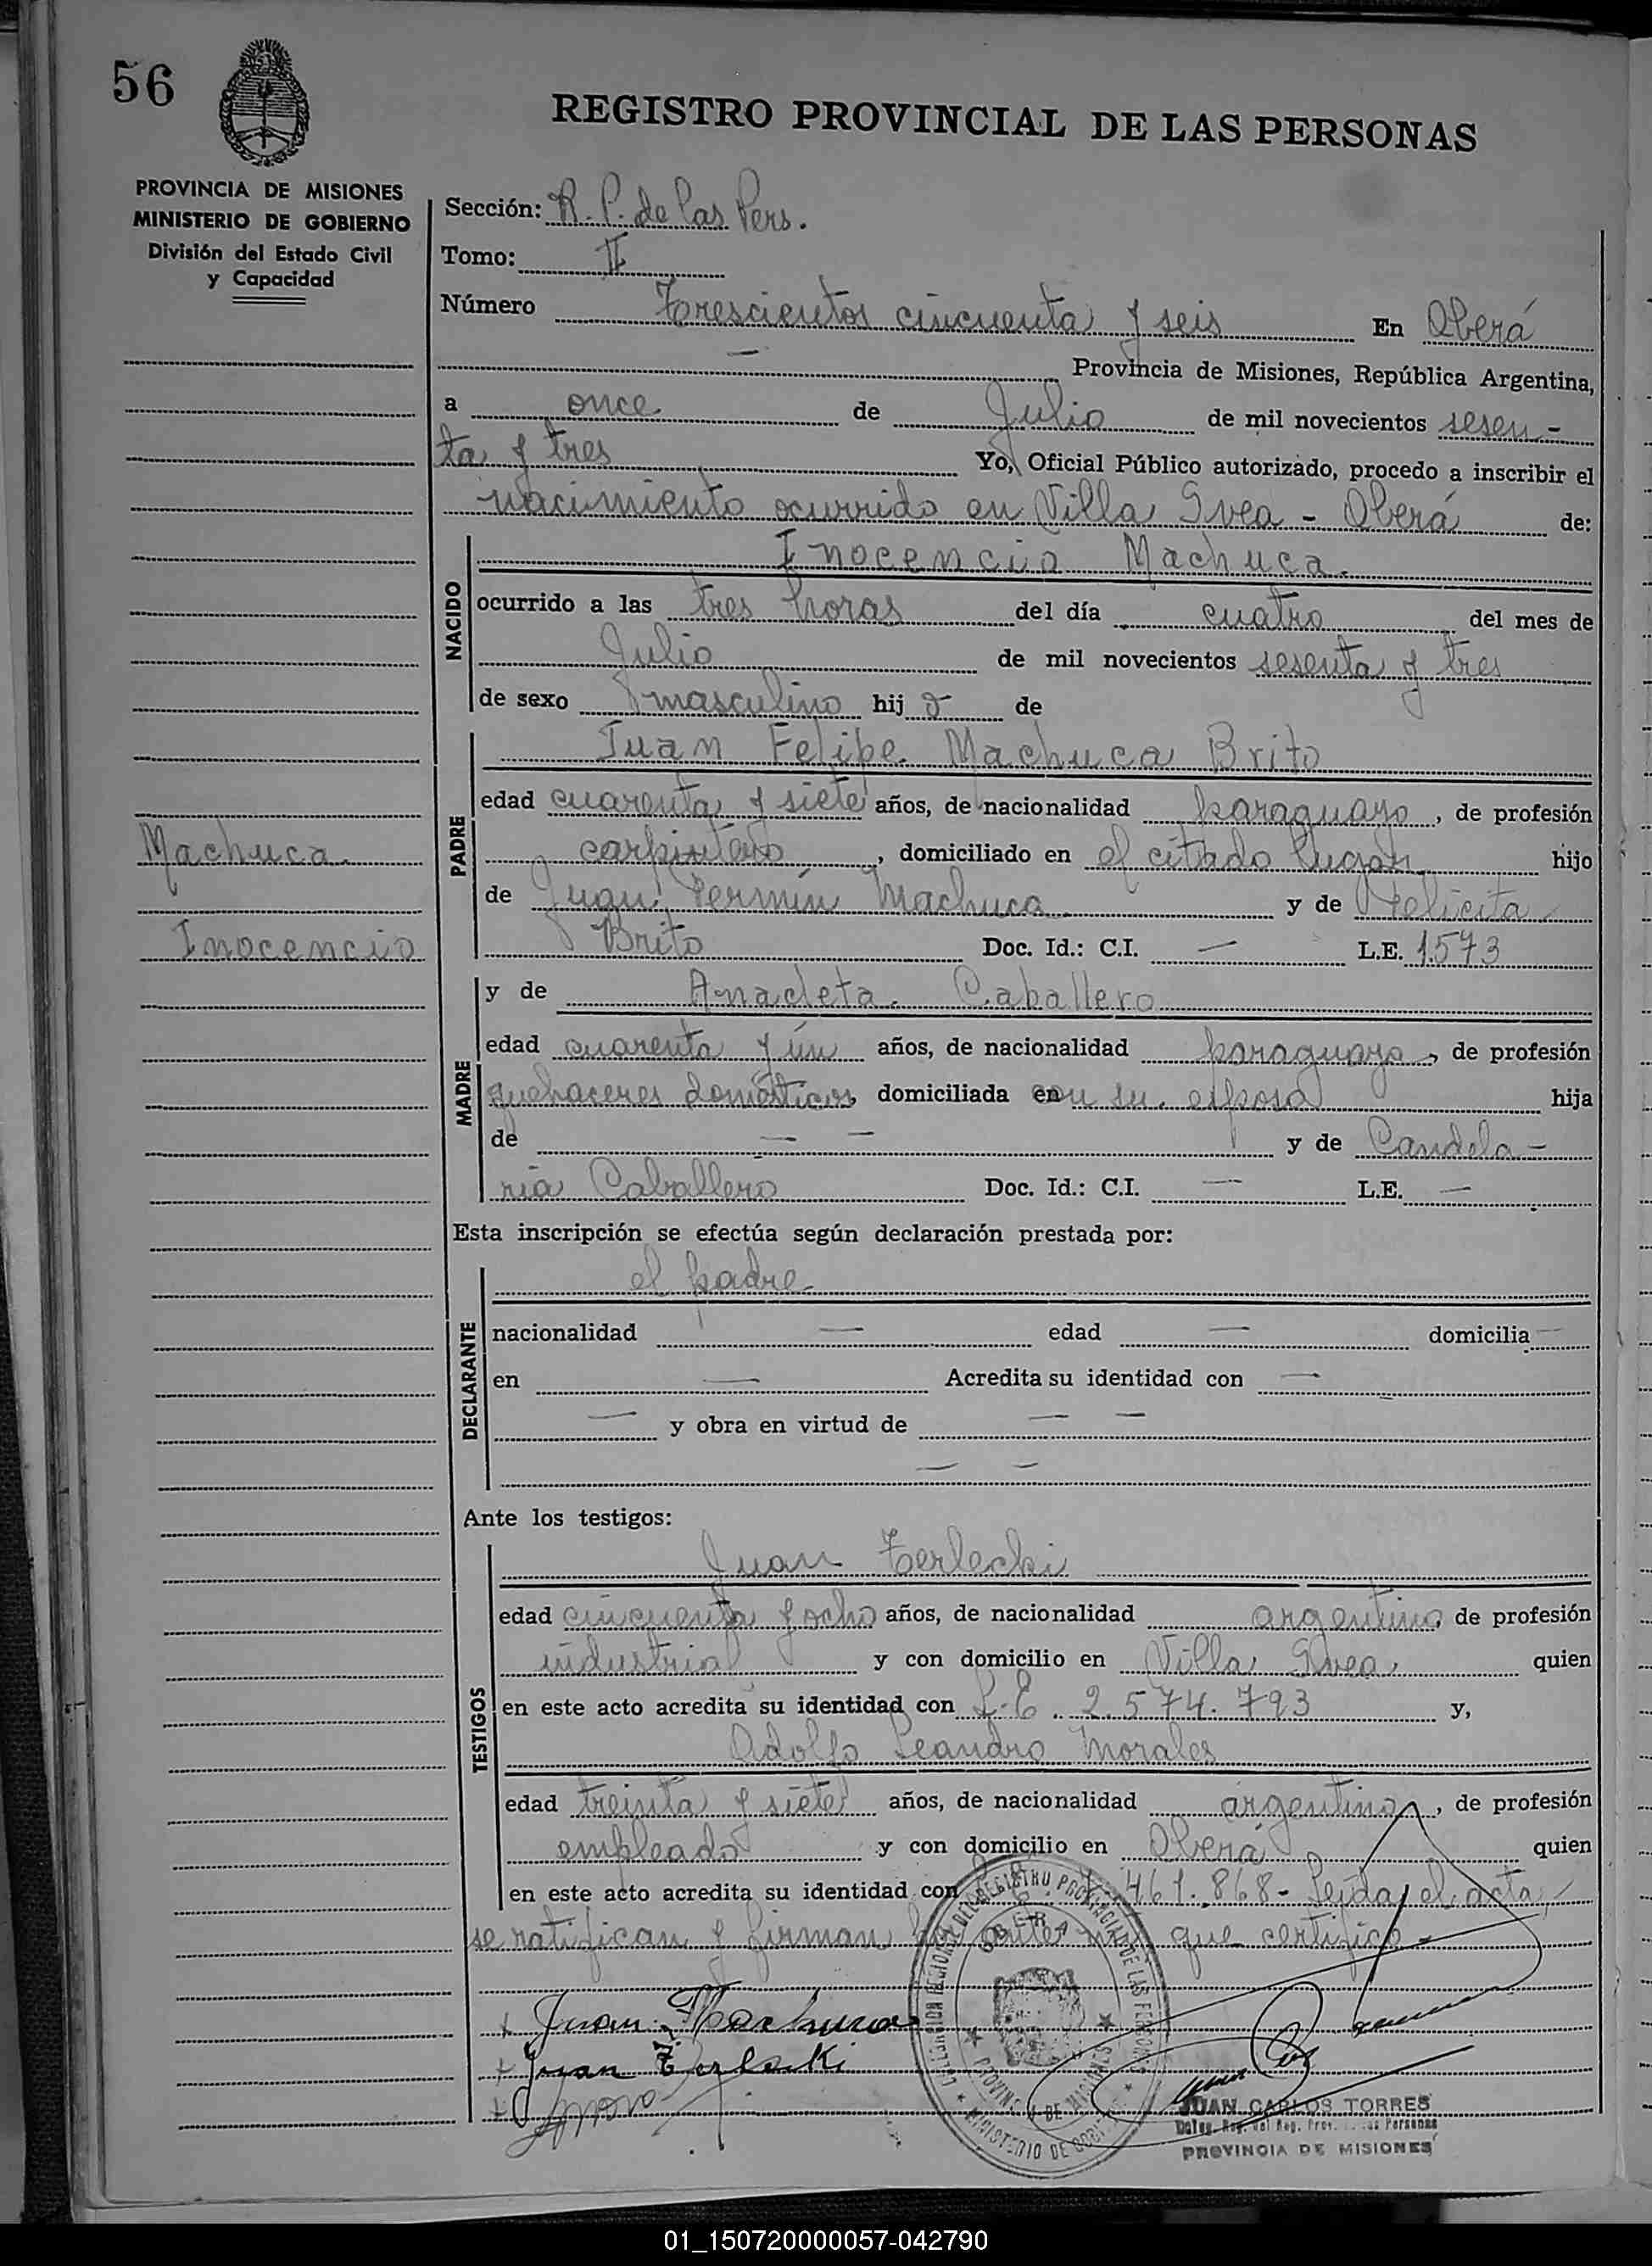 56
REGISTRO PROVINCIAL DE LAS PERSONAS
PROVINCIA DE MISIONES
MINISTERIO DE GOBIERNO
División del Estado Civil
y Capacidad
Sección: R. P. de las Pers.
Tomo: II
Número Trescientos cincuenta y seis En Oberá
— Provincia de Misiones, República Argentina,
a once de Julio de mil novecientos sesen-
ta y tres Yo, Oficial Público autorizado, procedo a inscribir el
nacimiento ocurrido en Villa Svea - Oberá de:
NACIDO
Inocencio Machuca.
ocurrido a las tres horas del día cuatro del mes de
Julio de mil novecientos sesenta y tres
de sexo masculino hij o de
PADRE
Juan Felipe Machuca Brito
edad cuarenta y siete años, de nacionalidad paraguayo, de profesión
carpintero, domiciliado en el citado lugar hijo
de Juan Fermín Machuca y de Felicita
Brito Doc. Id.: C.I. — L.E. 1.573
Machuca
Inocencio
MADRE
y de Anacleta Caballero
edad cuarenta y un años, de nacionalidad paraguaya, de profesión
quehaceres domésticos domiciliada con su esposo hija
de — — y de Candela-
ria Caballero Doc. Id.: C.I. — L.E. —
Esta inscripción se efectúa según declaración prestada por:
DECLARANTE
el padre
nacionalidad — edad — domicilia —
en — Acredita su identidad con —
— y obra en virtud de — —
— —
Ante los testigos:
TESTIGOS
Juan Terlecki
edad cincuenta y ocho años, de nacionalidad argentino, de profesión
industrial y con domicilio en Villa Svea, quien
en este acto acredita su identidad con L.E. 2.574.793 y,
Adolfo Leandro Morales
edad treinta y siete años, de nacionalidad argentino, de profesión
empleado y con domicilio en Oberá quien
en este acto acredita su identidad con 461.868- Leída el acta,
se ratifican y firman ante que certifico-
Juan Machuca
Juan Terlecki
OBERA
PROVINCIA DE MISIONES
MINISTERIO DE
JUAN CARLOS TORRES
Deleg. Reg. del Reg. Prov. Personas
PROVINCIA DE MISIONES
01_150720000057-042790